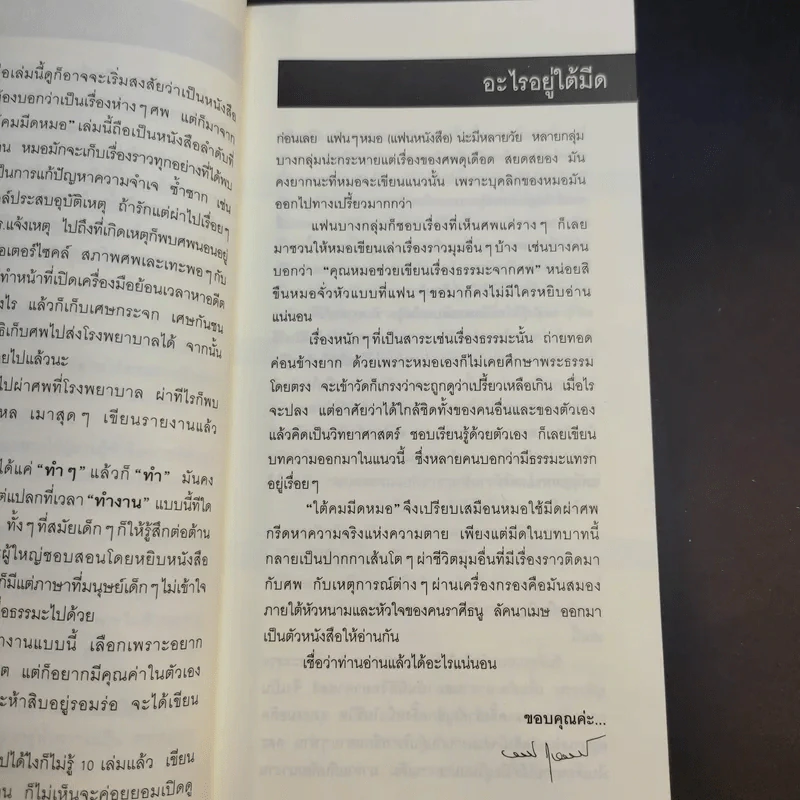 อเล่มนี้ดูก็อาจจะเริ่มสงสัยว่าเป็นหนังสือ
องบอกว่าเป็นเรื่องห่างๆ ศพ แต่ก็มาจาก
คมมีดหมอ” เล่มนี้ถือเป็นหนังสือลำดับที่
น หมอมักจะเก็บเรื่องราวทุกอย่างที่ได้พบ
ป็นการแก้ปัญหาความจำเจ ซ้ำซาก เช่น
ล์ประสบอุบัติเหตุ ถ้ารักแต่ผ่าไปเรื่อยๆ
ร.แจ้งเหตุ ไปถึงที่เกิดเหตุก็พบศพนอนอยู่
อเตอร์ไซคล์ สภาพศพเละเทะพอๆ กับ
ทำหน้าที่เปิดเครื่องมือย้อนเวลาหาอดีต
งไร แล้วก็เก็บเศษกระจก เศษกันชน
ธิเก็บศพไปส่งโรงพยาบาลได้ จากนั้น
ยไปแล้วนะ
ไปผ่าศพที่โรงพยาบาล ผ่าทีไรก็พบ
หล เมาสุดๆ เขียนรายงานแล้ว
ได้แค่ “ทำๆ” แล้วก็ “ทำ” มันคง
ต่แปลกที่เวลา “ทำงาน” แบบนี้ทีใด
ทั้งๆ ที่สมัยเด็กๆ ก็ให้รู้สึกต่อต้าน
ผู้ใหญ่ชอบสอนโดยหยิบหนังสือ
ก็มีแต่ภาษาที่มนุษย์เด็กๆ ไม่เข้าใจ
อธรรมะไปด้วย
างานแบบนี้ เลือกเพราะอยาก
ต แต่ก็อยากมีคุณค่าในตัวเอง
ะห้าสิบอยู่รอมร่อ จะได้เขียน
ปได้ไงก็ไม่รู้ 10 เล่มแล้ว เขียน
าน ก็ไม่เห็นจะค่อยยอมเปิดดู
อะไรอยู่ใต้มีด
ก่อนเลย แฟนๆ หมอ (แฟนหนังสือ) น่ะมีหลายวัย หลายกลุ่ม
บางกลุ่มน่ะกระหายแต่เรื่องของศพดุเดือด สยดสยอง มัน
คงยากนะที่หมอจะเขียนแนวนั้น เพราะบุคลิกของหมอมัน
ออกไปทางเปรี้ยวมากกว่า
แฟนบางกลุ่มก็ชอบเรื่องที่เห็นศพแค่รางๆ ก็เลย
มาชวนให้หมอเขียนเล่าเรื่องราวมุมอื่นๆ บ้าง เช่นบางคน
บอกว่า “คุณหมอช่วยเขียนเรื่องธรรมะจากศพ” หน่อยสิ
ขืนหมอจั่วหัวแบบที่แฟนๆ ขอมาก็คงไม่มีใครหยิบอ่าน
แน่นอน
เรื่องหนักๆ ที่เป็นสาระเช่นเรื่องธรรมะนั้น ถ่ายทอด
ค่อนข้างยาก ด้วยเพราะหมอเองก็ไม่เคยศึกษาพระธรรม
โดยตรง จะเข้าวัดก็เกรงว่าจะถูกดูว่าเปรี้ยวเหลือเกิน เมื่อไร
จะปลง แต่อาศัยว่าได้ใกล้ชิดทั้งของคนอื่นและของตัวเอง
แล้วคิดเป็นวิทยาศาสตร์ ชอบเรียนรู้ด้วยตัวเอง ก็เลยเขียน
บทความออกมาในแนวนี้ ซึ่งหลายคนบอกว่ามีธรรมะแทรก
อยู่เรื่อยๆ
“ใต้คมมีดหมอ” จึงเปรียบเสมือนหมอใช้มีดผ่าศพ
กรีดหาความจริงแห่งความตาย เพียงแต่มีดในบทบาทนี้
กลายเป็นปากกาเส้นโตๆ ผ่าชีวิตมุมอื่นที่มีเรื่องราวติดมา
กับศพ กับเหตุการณ์ต่างๆ ผ่านเครื่องกรองคือมันสมอง
ภายใต้หัวหนามและหัวใจของคนราศีธนู ลัคนาเมษ ออกมา
เป็นตัวหนังสือให้อ่านกัน
เชื่อว่าท่านอ่านแล้วได้อะไรแน่นอน
ขอบคุณค่ะ...